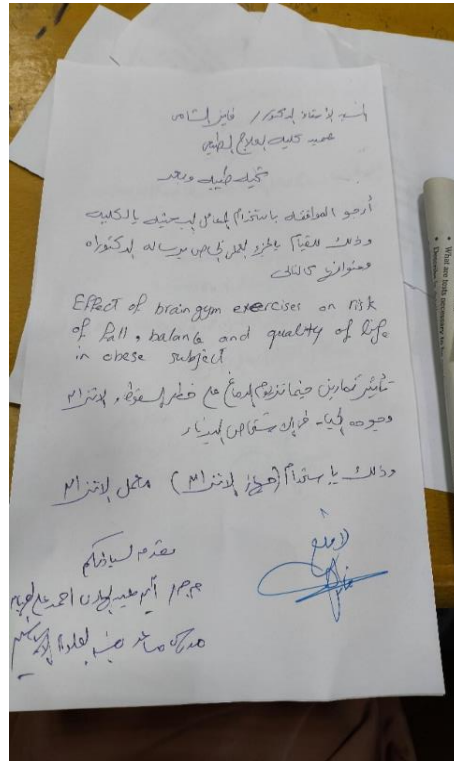 السيد الأستاذ الدكتور / فايز الشامى
عميد كلية العلاج الطبيعى
تحيه طيبه وبعد
أرجو الموافقه باستخدام المعامل البحثيه بالكليه
وذلك للقيام بالجزء العملى الخاص برسالة الدكتوراه
وعنوانها كالتالى
Effect of brain gym exercises on risk
of fall, balance and quality of life
in obese subject
تأثير تمارين جيمانزيوم الدماغ على خطر السقوط والاتزان
وجودة الحياة فى الاشخاص البدناء
وذلك باستخدام (جهاز الاتزان) معمل الاتزان
لا مانع
مقدم لسيادتكم
عبد الهادى احمد على
مدرس مساعد بقسم العلوم الاساسيه
• What are tests necessary to